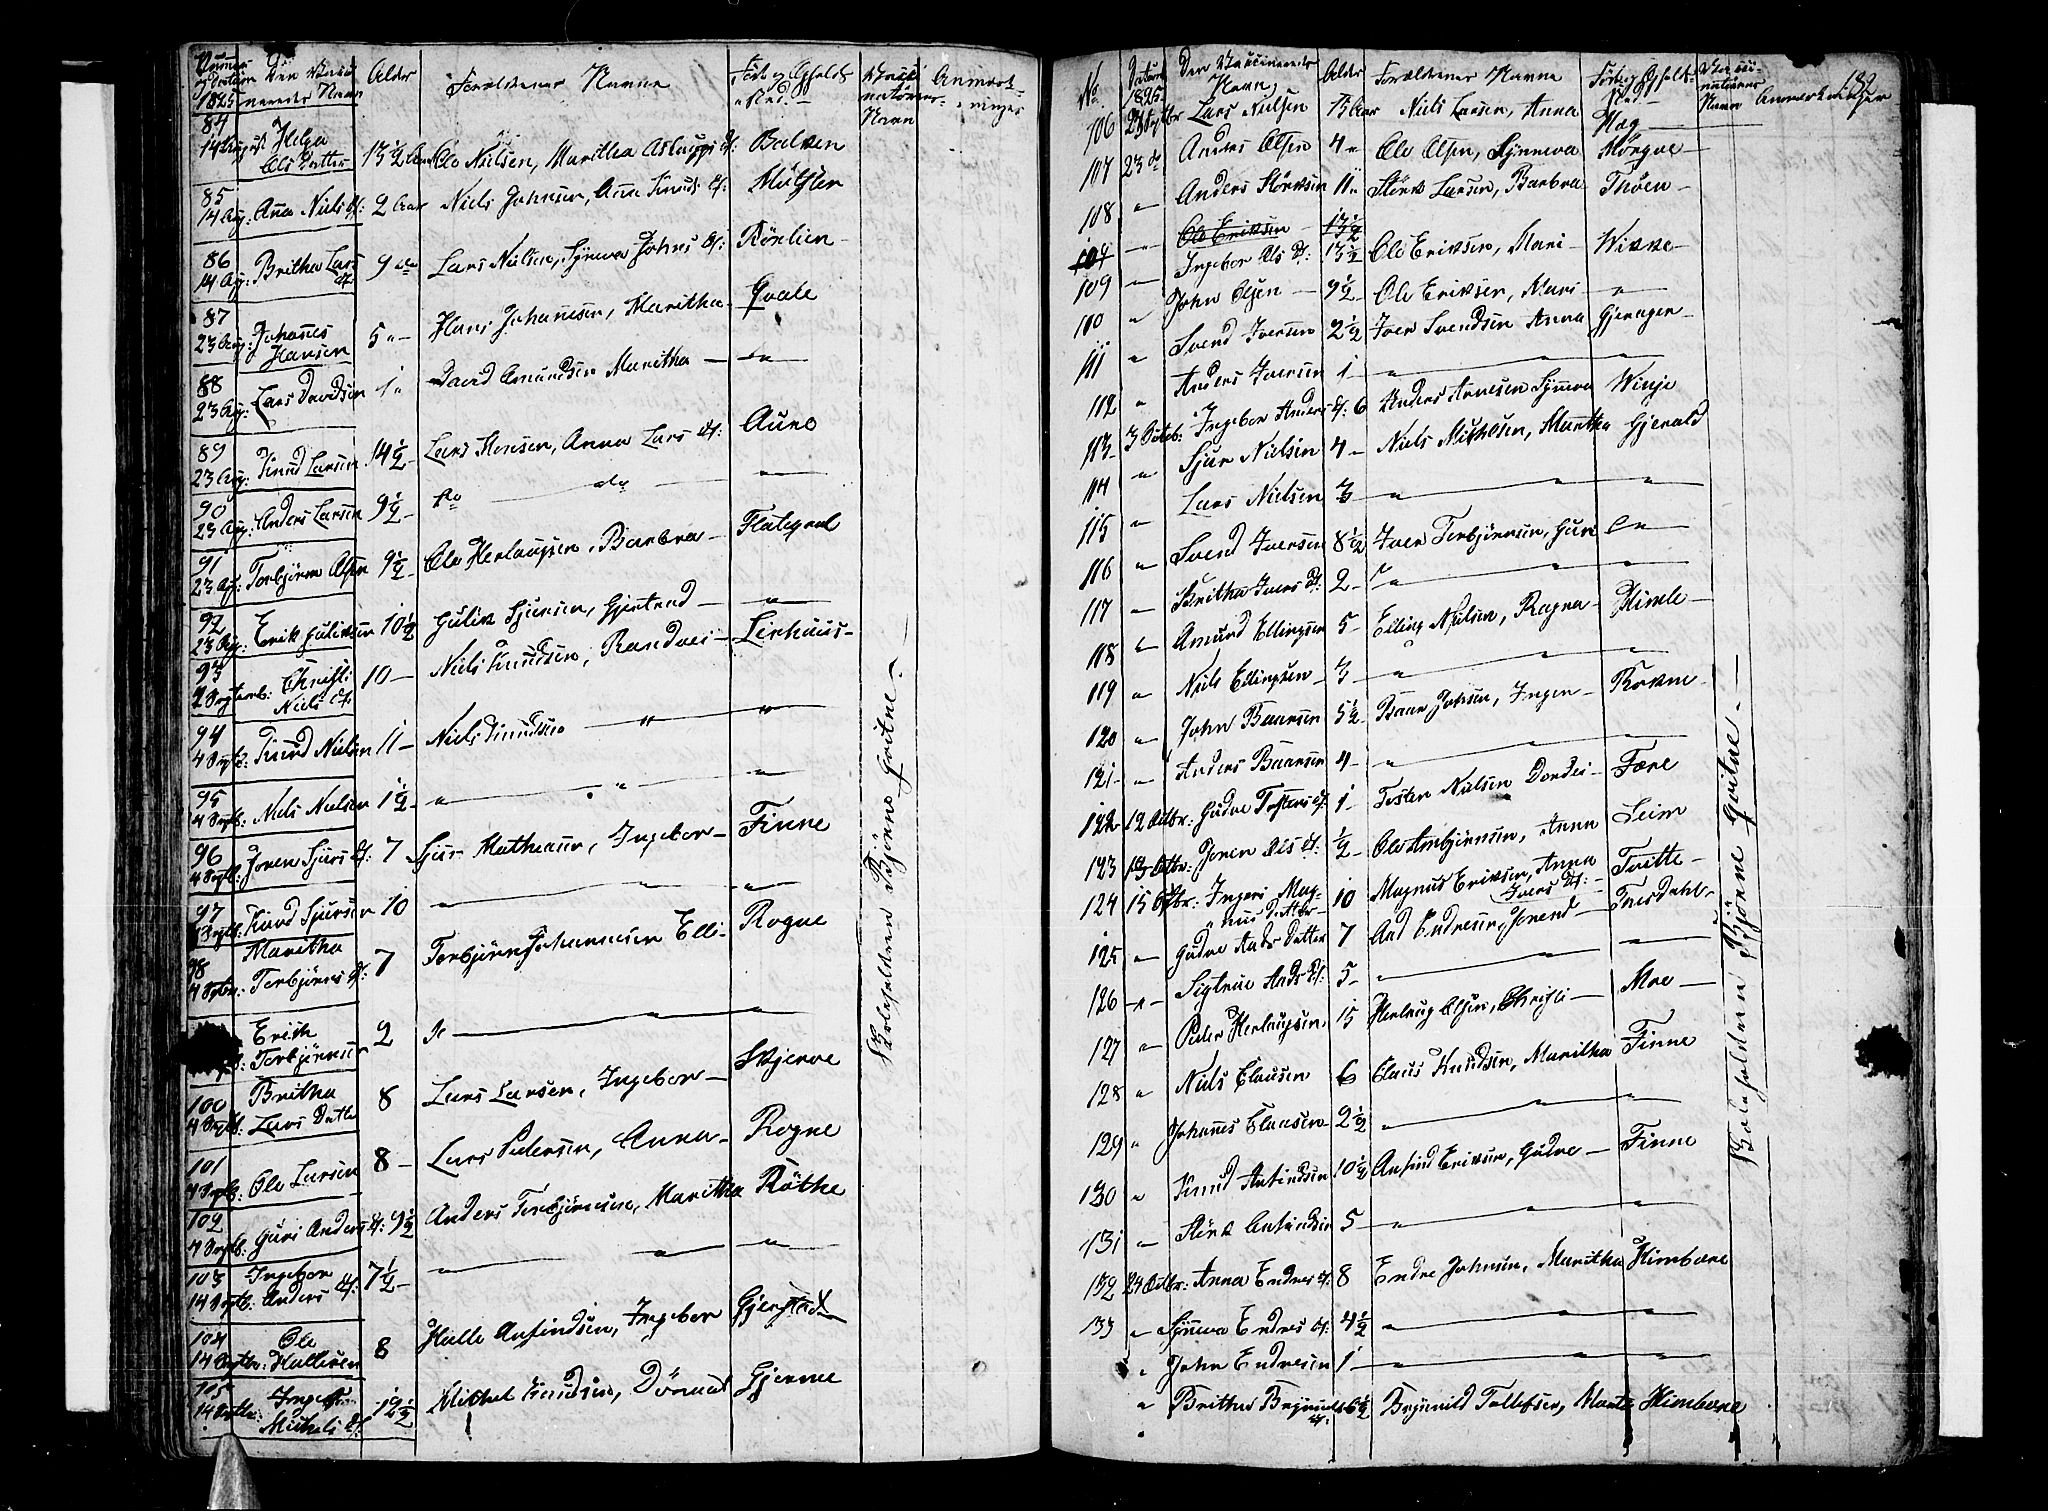 Numer og Datum 1825 Den Vaccineredes Navn Alder Forældrenes Navne Føde og Opholds Sted Vaccinatørens Navn Anmærkninger
84 14 August Helga Ols Datter 13½ Aar Ole Nielsen, Maritha Aslaugs D: Balken
85 14 Aug: Ana Niels D: 2 Aar Niels Johnsen, Ana Knuds D:
86 14 Aug: Britha Lars D: 9 Lars Nielsen, Syneva Johns D: Rørlien
87 23 Aug: Johanes Hansen 5 " Hans Johanesen, Maritha Qvale
88 23 Aug: Lars Davidsen 1 " David Amundsen Maritha "
89 23 Aug: Knud Larsen 14½ Lars Monsen, Anna Lars D: Auno
90 23 Aug: Anders Larsen 9½ do do "
91 23 Aug: Torbjørn Olsen 9½ Ole Herlaugsen, Barbra Flatequal
92 23 Aug: Erik Gulliksen 10½ Gulik Sjursen, Gjertrud "
93 2 Septemb: Christi Niels D: 10 Niels Knudsen, Randvei Lirhuus
94 4 Septb: Knud Nielsen 11 Niels Knudsen " "
95 4 Septb: Niels Nielsen 1½ " " "
96 4 Septb: Joren Sjurs D: 7 Sjur Mathesen, Ingebor Finne
97 Septb: Knud Sjursen 10 " "
98 4 Septbr: Maritha Torbjørns D: 7 Torbjørn Johannesen Elli Rogne
Erick Torbjørnsen 2 " "
100 4 Septb: Britha Lars Datter 8 Lars Larsen, Ingebor Skjerve
101 4 Septb: Ole Larsen 8 Lars Pedersen, Anna Rogne
102 4 Septb: Guri Anders D: 9½ Anders Torbjørnsen, Maritha Röthe
103 14 Septb: Ingebor Anders D: 7½ " " "
104 14 Septbr: Ole Hallesen 8 Halle Anfindsen, Ingebor Gjerstad
105 14 Septbr: Ingebor Michels D: 12½ Michel Knudsen, Dorend Gjerme
Skoleholderen Bjørno Gvitne
182
No. Datum 1825 Den Vaccineredes Navn Alder Forældrenes Navne Føde og Opholds Sted Vaccinatørens Navn Anmærkninger
106 23 Septbr Lars Nielsen Aar Niels Larsen, Anna Hag
107 23 do Anders Olsen 4 " Ole Olsen, Synneva Mørqve
108 " Anders Størksen 11 " Størk Larsen, Barbra Thøen
109 " Ole Eriksen 13½
" Ingebor Ols D: 13½ Ole Eriksen, Mari Wikke
109 " John Olsen 9½ Ole Eriksen, Mari "
110 " Svend Iversen 2½ Iver Svendsen Anna Gjerager
111 " Anders Iversen 1 " "
112 " Ingebor Anders D: 6 Anders Arnesen Synneva Winje
113 3 Octob: Sjur Nielsen 4 Niels Michelsen, Martha Gjerald
114 " Lars Nielsen 3 " "
115 " Svend Iversen 8½ Iver Torbjørnsen, Guri "
116 " Britha Ivers D: 2 "
117 " Amund Ellingsen 5 Elling Nielsen, Ragna Himle
118 " Niels Ellingsen 3 " "
119 " John Baarsen 5½ Baar Johnsen, Inger Rokne
120 " Anders Baarsen 4 " "
121 "
122 12 Octbr: Gudve Tosters D: 1 Tosten Nielsen Dordei Fære
123 12 Octbr: Joren Ols D: ½ Ole Arnbjørnsen, Anna Leim
124 15 Octbr: Ingeri Magnus Datter 10 Magnus Eriksen, Anna Ivers D: Tvitte
125 " Gudve Aads Datter 7 Aad Endresen, Jorend Torsdahl
126 " Sigtrue Aads D: 5 " "
127 " Peder Herlaugsen 15 Herlaug Olsen, Christi Moe
128 " Niels Clausen 6 Claus Knudsen, Maritha Finne
129 " Johannes Clausen 2½ " "
130 " Knud Anfindsen 10½ Anfind Eriksen, Gudve Finne
131 " Størk Anfindsen 5 " "
132 24 Octbr: Anna Endres D: 8 Endre Johnsen, Maritha Kinbære
133 " Synneva Endres D: 4½ " "
" John Endresen 1 " "
" Britha Brynilds D: 6½ Brynild Tollefsen, Marta Kinbære
Skoleholderen Bjørne Gvitne